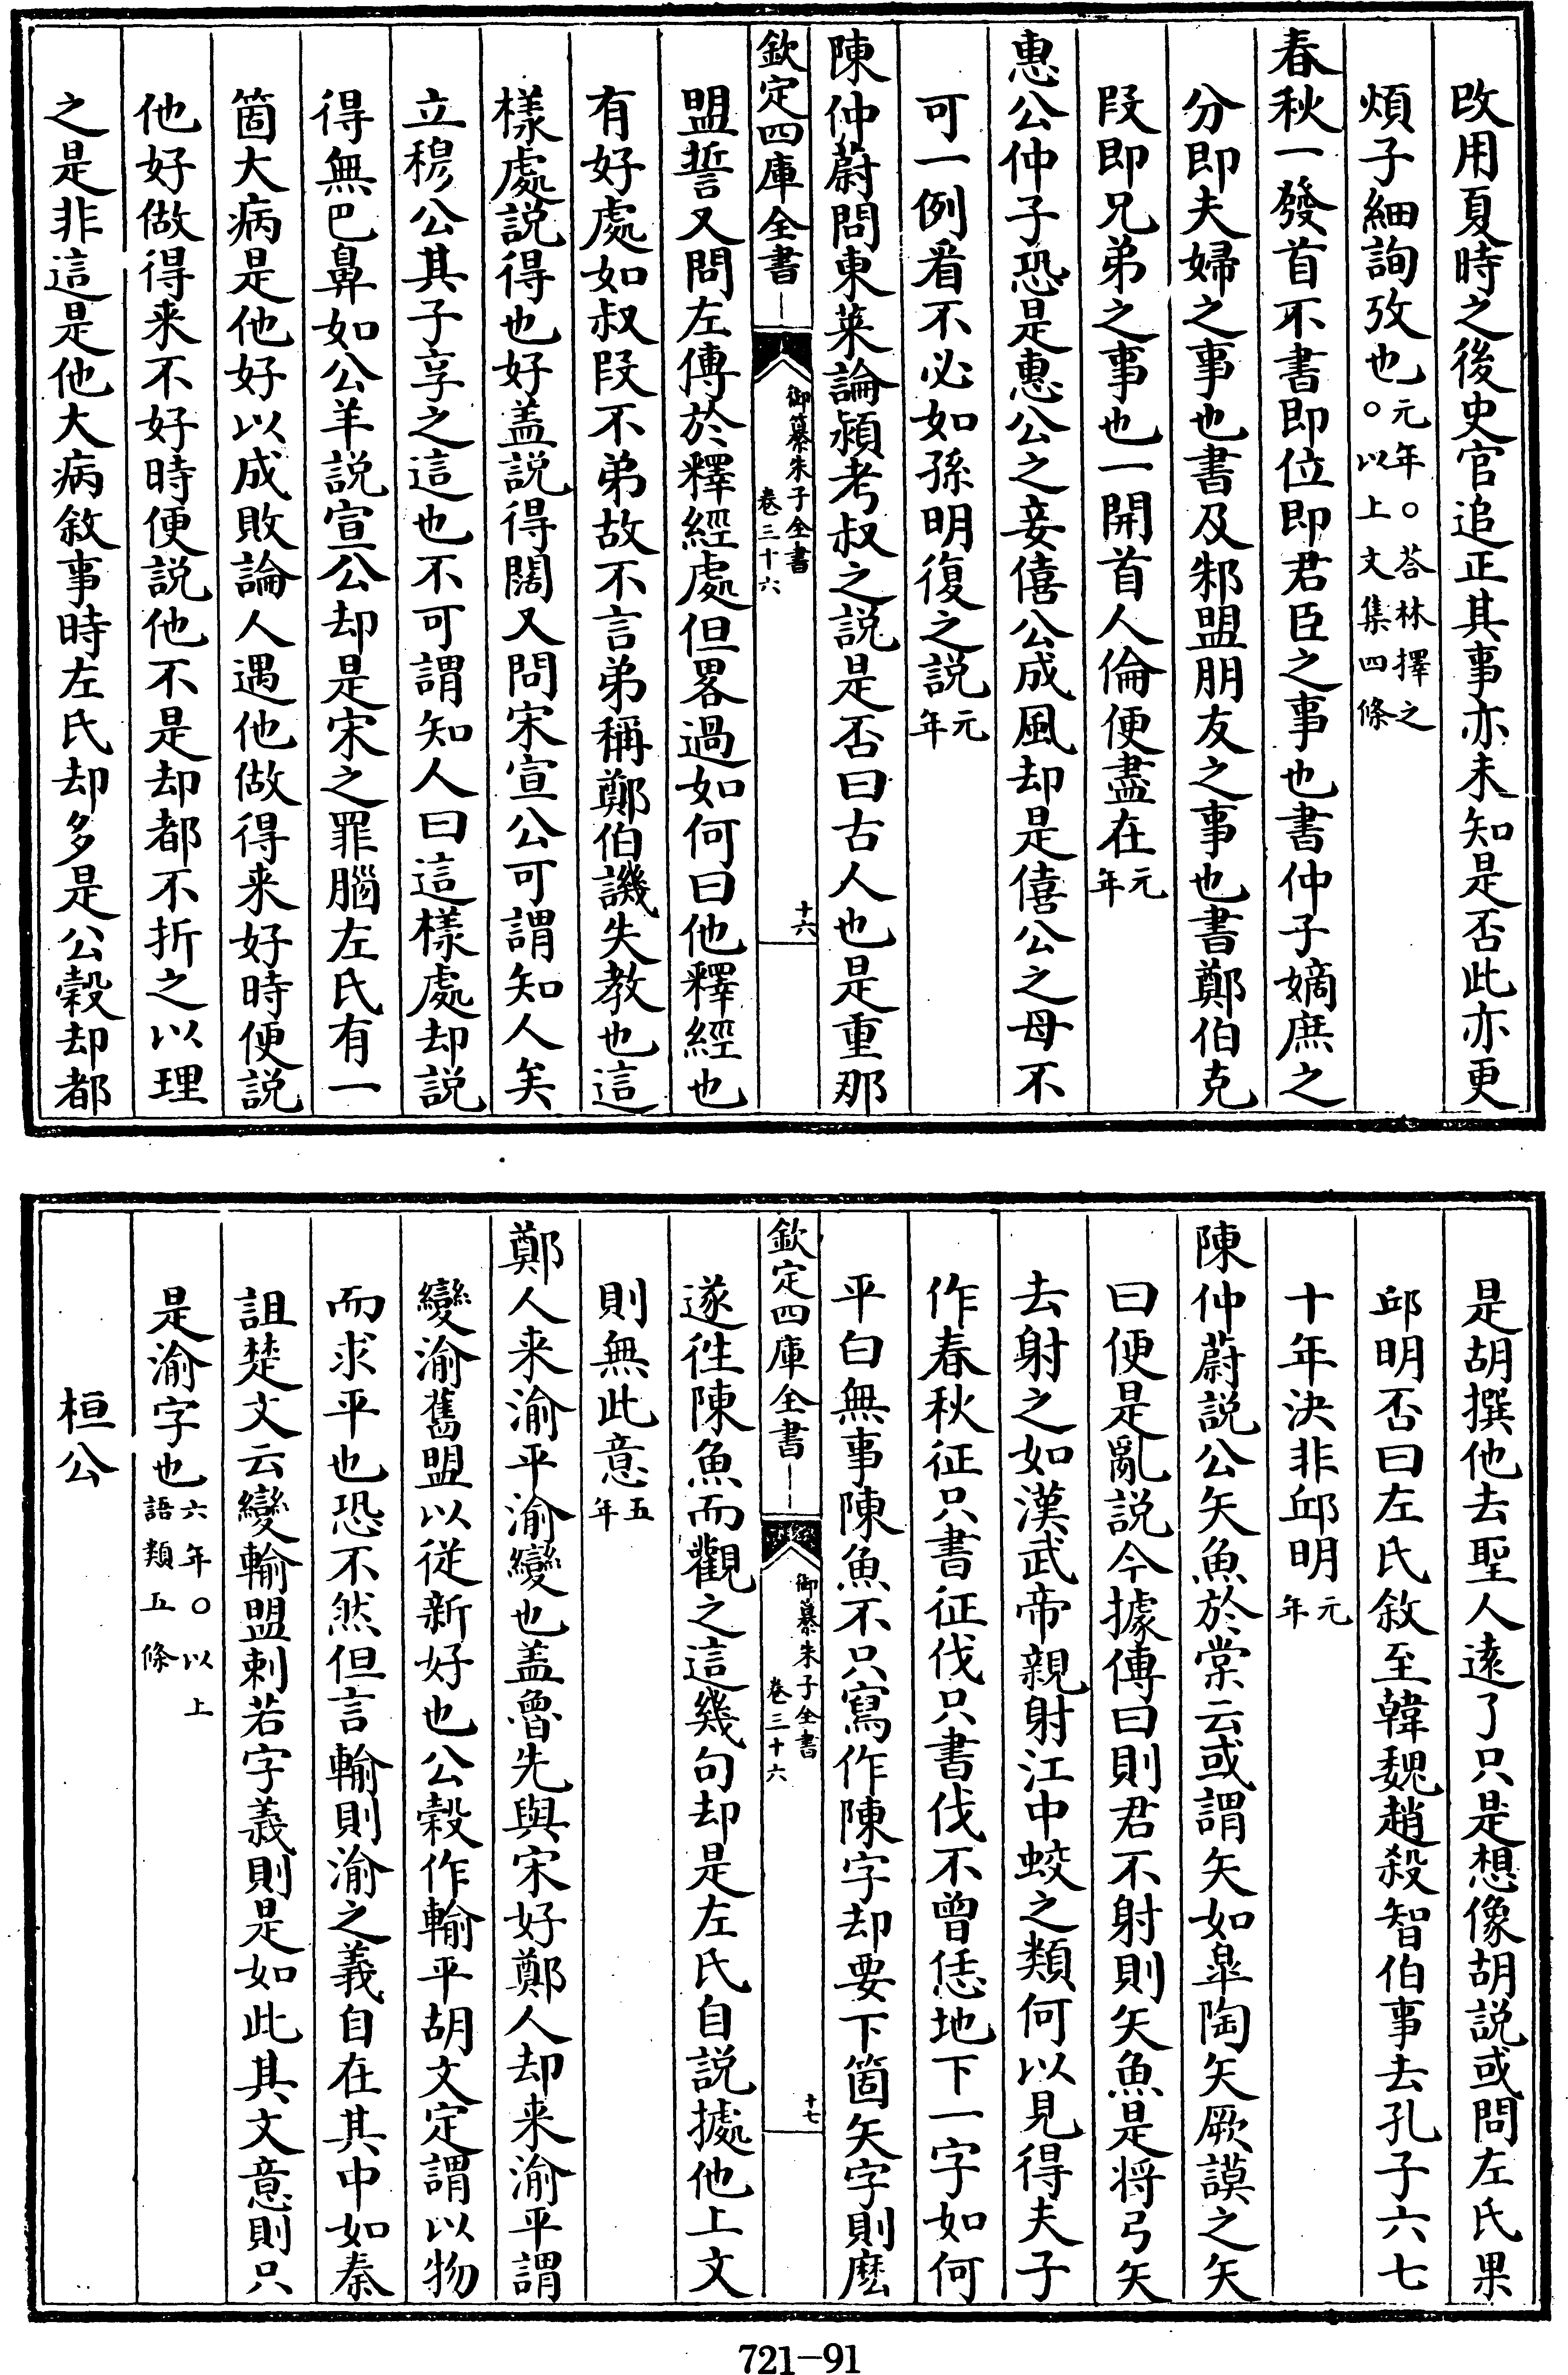 改用夏時之後史官追正其事亦未知是否此亦更
煩子細詢攷也元年○荅林擇之○以上文集四條
春秋一發首不書即位即君臣之事也書仲子嫡庶之
分即夫婦之事也書及邾盟朋友之事也書鄭伯克
段即兄弟之事也一開首人倫便盡在元年
惠公仲子恐是惠公之妾僖公成風却是僖公之母不
可一例看不必如孫明復之説元年
陳仲蔚問東萊論潁考叔之説是否曰古人也是重那
欽定四庫全書
御纂朱子全書
卷三十六
十六
盟誓又問左傳於釋經處但畧過如何曰他釋經也
有好處如叔段不弟故不言弟稱鄭伯譏失教也這
樣處説得也好盖説得闊又問宋宣公可謂知人矣
立穆公其子享之這也不可謂知人曰這樣處却説
得無巴鼻如公羊説宣公却是宋之罪腦左氏有一
箇大病是他好以成敗論人遇他做得来好時便説
他好做得来不好時便説他不是却都不折之以理
之是非這是他大病敘事時左氏却多是公穀却都
是胡撰他去聖人遠了只是想像胡説或問左氏果
邱明否曰左氏敘至韓魏趙殺智伯事去孔子六七
十年決非邱明元年
陳仲蔚説公矢魚於棠云或謂矢如皐陶矢厥謨之矢
曰便是亂説今據傳曰則君不射則矢魚是将弓矢
去射之如漢武帝親射江中蛟之類何以見得夫子
作春秋征只書征伐只書伐不曾恁地下一字如何
平白無事陳魚不只寫作陳字却要下箇矢字則麽
欽定四庫全書
御纂朱子全書
卷三十六
十七
遂徃陳魚而觀之這幾句却是左氏自説據他上文
則無此意五年
鄭人来渝平渝變也盖魯先與宋好鄭人却来渝平謂
變渝舊盟以從新好也公穀作輸平胡文定謂以物
而求平也恐不然但言輸則渝之義自在其中如秦
詛楚文云變輸盟刺若字義則是如此其文意則只
是渝字也六年○以上語類五條
桓公
721-91